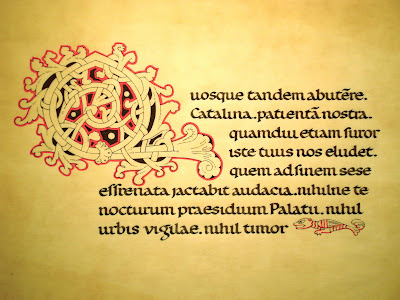 Quosque tandem abutēre.
Catalina. patientā nostra.
quamdiu etiam furor
iste tuus nos eludet.
quem ad finem sese
effrenata jactabit audacia. nihilne te
nocturum praesidium Palatii. nihil
urbis vigilae. nihil timor